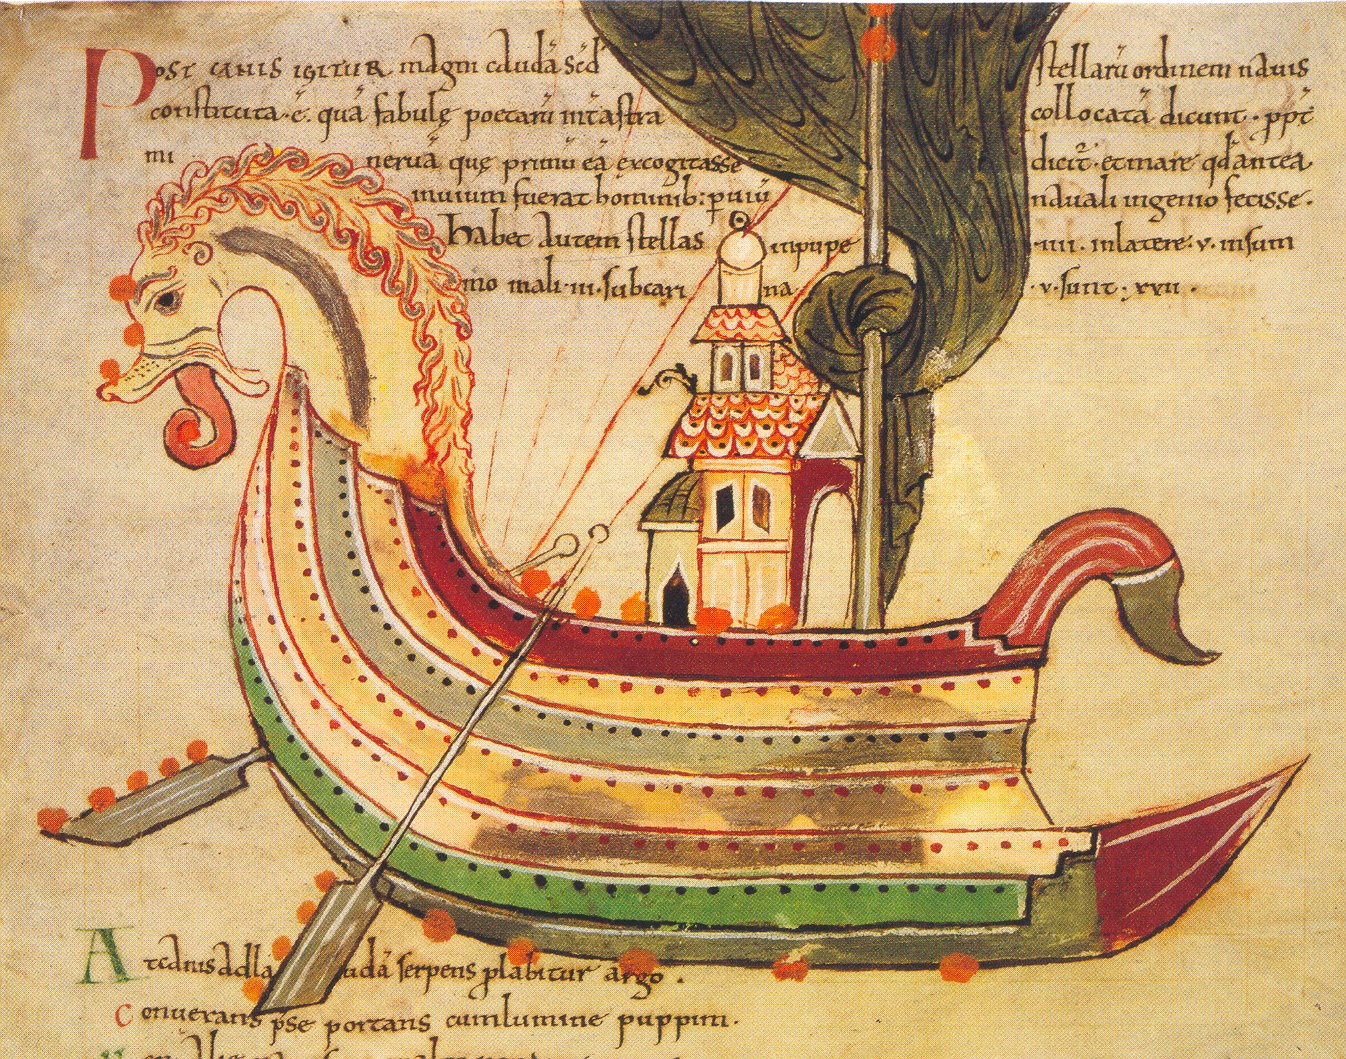 Post canis igitur magni caudā sed stellarū ordinem nauis
constituta·ē· quā fabulę poetarū int̄ astra collocatā dicunt· ppt̄
mineruā quę primū eā excogitasse dicit̄· et mare qd̄ antea
inuium fuerat hominib: puiū nauali ingenio fecisse·
Habet autem stellas in puppe ·iiii· in latere·v· in sum
mo mali·iii·sub carina· ·v·sunt·xvii·
At canis ad caudā serpens plabitur argo·
Conuerans pse portans cum lumine puppim·